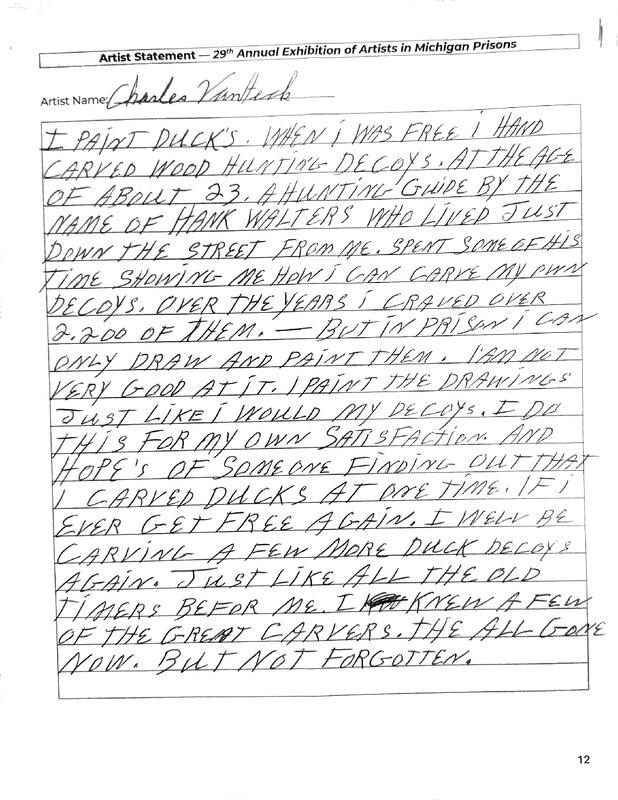 Artist Statement — 29th Annual Exhibition of Artists in Michigan Prisons
Artist Name: Charles VanHeck
I PAINT DUCK'S. WHEN i WAS FREE i HAND
CARVED WOOD HUNTING DECOYS. AT THE AGE
OF ABOUT 23. A HUNTING GUIDE BY THE
NAME OF HANK WALTERS WHO LIVED JUST
DOWN THE STREET FROM ME. SPENT SOME OF HIS
TIME SHOWING ME HOW i CAN CARVE MY OWN
DECOYS. OVER THE YEARS i CRAVED OVER
2.200 OF THEM. — BUT IN PRISON i CAN
ONLY DRAW AND PAINT THEM. I'AM NOT
VERY GOOD AT IT. I PAINT THE DRAWINGS
JUST LIKE i WOULD MY DECOYS. I DO
THIS FOR MY OWN SATISFACTION. AND
HOPE'S OF SOMEONE FINDING OUT THAT
I CARVED DUCKS AT ONE TIME. IF i
EVER GET FREE AGAIN. I WELL BE
CARVING A FEW MORE DUCK DECOYS
AGAIN. JUST LIKE ALL THE OLD
TIMERS BEFOR ME. I KNEW A FEW
OF THE GREAT CARVERS. THE ALL GONE
NOW. BUT NOT FORGOTTEN.
12